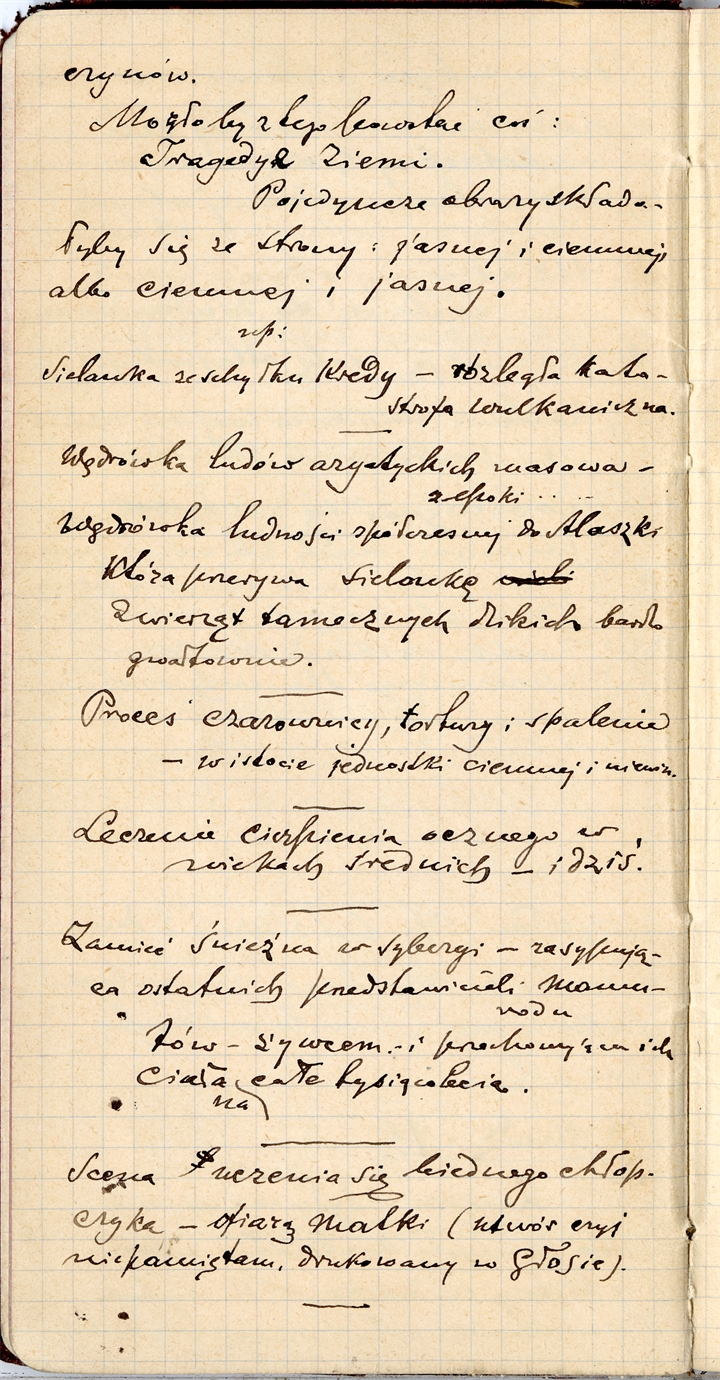 czynów.
Mogłoby z tego powstać coś:
Tragedya Ziemi.
Pojedyncze obrazy składa-
łyby się ze strony: jasnej i ciemnej
albo ciemnej i jasnej.
np:
Sielanka ze schyłku Kredy – rozległa kata-
strofa wulkaniczna.
Wędrówka ludów azyatyckich masowa –
z epoki ....
Wędrówka ludności spółczesnej do Alaszki
która przerywa sielankę
zwierząt tamecznych dzikich bardo
gwałtownie.
Proces czarownicy, tortury i spalenie
– w istocie jednostki ciemnej i niewin.
Leczenie cierpienia ocznego w
wiekach średnich – i dziś.
Zamieć śnieżna w Syberyi – zasypują-
ca ostatnich przedstawicieli mamu-
rodu
tów – żywcem – i prachowująca ich
ciała całe tysiąclecia.
na
Scena uczenia się biednego chłop-
czyka – ofiarą matki (utwór czyj
nie pamiętam, drukowany w Głosie).